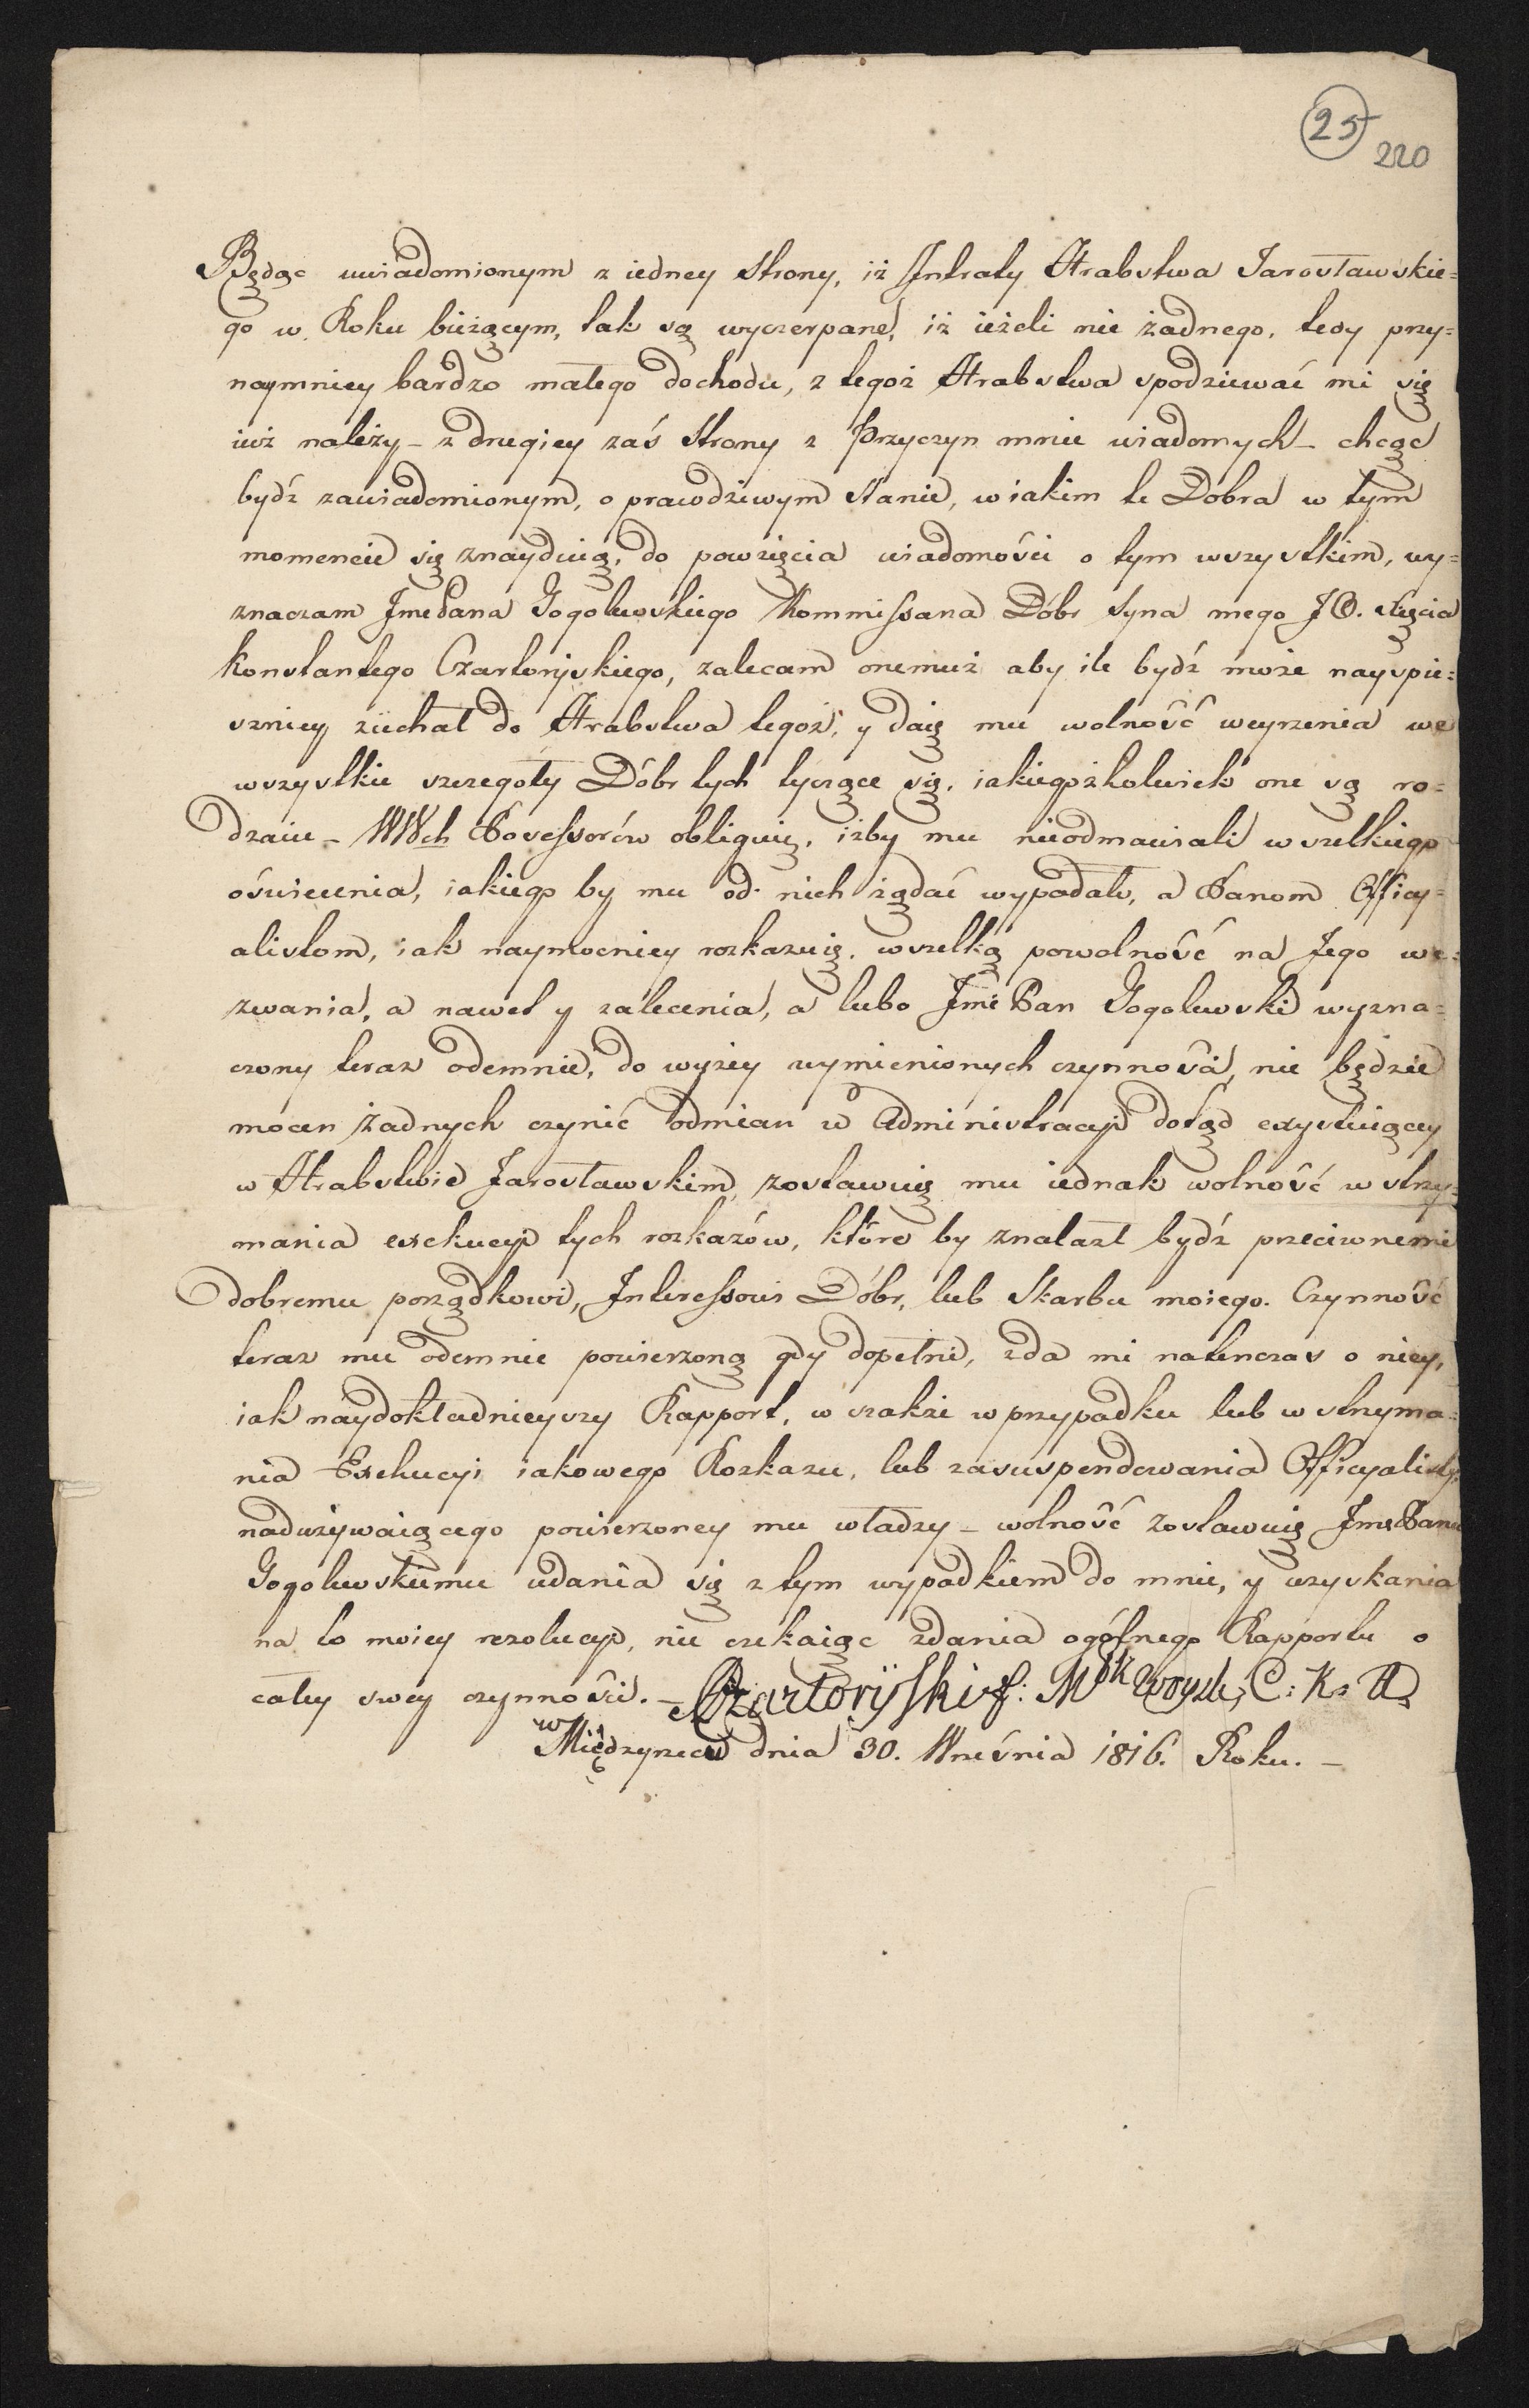 25
220
Będąc uwiadomionym z iedney strony, iż Intraty Hrabstwa Jarosławskie=
go w Roku bieżącym, tak są wyczerpane, iż ieżeli nie żadnego, tedy przy=
naymniey bardzo małego dochodu, z tegoż Hrabstwa spodziewać mi się
iuż należy – z drugiey zaś strony z Przyczyn mnie wiadomych – chcąc
bydź zawiadomionym, o prawdziwym stanie, w iakim te Dobra w tym
momencie się znayduią, do powzięcia wiadomości o tym wszystkim, wy=
znaczam Jme Pana Gogolewskiego Kommissarza Dóbr syna mego J.O. Xięcia
Konstantego Czartoryskiego, zalecam onemuż aby ile bydź może nayspie=
szniey ziechał do Hrabstwa tegoż, y daię mu wolność weyrzenia we
wszystkie szczegóły Dóbr tych tyczące się, iakiegożkolwiek one są ro=
dzaiu – WWch Possessorów obliguię, iżby mu nieodmawiali wszelkiego
oświecenia, iakiego by mu od nich żądać wypadało, a Panom Officy=
alistom, iak naymocniey rozkazuię, wszelką powolność na Jego we=
zwania, a nawet y zalecenia, a lubo Jme Pan Gogolewski wyzna=
czony teraz odemnie, do wyżey wymienionych czynności, nie będzie
mocen żadnych czynić odmian w Administracyi dotąd exystuiącey
w Hrabstwie Jarosławskim, zostawuię mu iednak wolność wstrzy=
mania exekucyi tych rozkazów, które by znalazł bydź przeciwnemi
dobremu porządkowi, Interessowi Dóbr, lub Skarbu moiego. Czynność
teraz mu odemnie powierzoną gdy dopełni, zda mi natenczas o niey,
iak naydokładnieyszy Rapport, w szakże w przypadku lub wstrzyma=
nia Exekucyi iakowego Rozkazu, lub zasuspendowania Officyalisty
nadużywaiącego powierzoney mu władzy – wolność zostawuię Jme Panu
Gogolewskiemu udania się z tym wypadkiem do mnie, y uzyskania
na to moiey rezolucyi, nie czekaiąc zdania ogólnego Rapportu o
całey swey czynności. – Czartoryski f: M C: K: A
w Międzyrzecu dnia 30. Września 1816. Roku. –